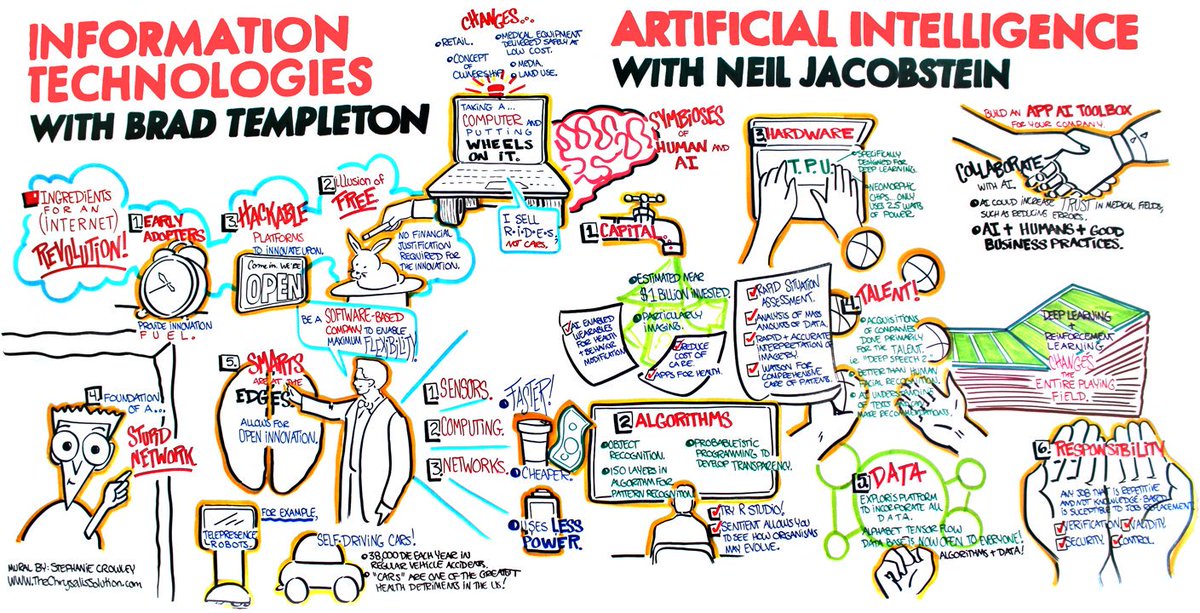 INFORMATION
TECHNOLOGIES
WITH BRAD TEMPLETON
CHANGES...
RETAIL.
CONCEPT
OF
OWNERSHIP.
MEDICAL EQUIPMENT
DELIVERED SAFELY AT
LOW COST.
MEDIA.
LAND USE.
TAKING A...
COMPUTER AND
PUTTING
WHEELS
ON IT.
I SELL
R•I•D•E•S,
NOT CARS.
INGREDIENTS
FOR AN
(INTERNET)
REVOLUTION!
1 EARLY
ADOPTERS
PROVIDE INNOVATION
FUEL.
3. HACKABLE
PLATFORMS
TO INNOVATE UPON.
Come in. We're
OPEN
2 ILLUSION OF
FREE
NO FINANCIAL
JUSTIFICATION
REQUIRED FOR
THE INNOVATION.
BE A SOFTWARE-BASED
COMPANY TO ENABLE
MAXIMUM FLEXIBILITY!
4. FOUNDATION
OF A...
STUPID
NETWORK.
5. SMARTS
ARE AT THE
EDGES.
ALLOWS FOR
OPEN INNOVATION.
1 SENSORS.
2 COMPUTING.
3 NETWORKS.
FASTER!
CHEAPER.
USES LESS
POWER.
FOR EXAMPLE,
TELEPRESENCE
ROBOTS.
SELF-DRIVING CARS!
38,000 DIE EACH YEAR IN
REGULAR VEHICLE ACCIDENTS.
"CARS" ARE ONE OF THE GREATEST
HEALTH DETRIMENTS IN THE US!
MURAL BY: STEPHANIE CROWLEY
WWW.TheChrysalisSolution.com
ARTIFICIAL INTELLIGENCE
WITH NEIL JACOBSTEIN
SYMBIOSES
OF
HUMAN AND
AI
1. CAPITAL...
ESTIMATED NEAR
$1 BILLION INVESTED.
PARTICULARLY
IMAGING.
AI ENABLED
WEARABLES
FOR HEALTH
+ BEHAVIOR
MODIFICATION
REDUCE
COST OF
CARE.
APPS FOR HEALTH.
RAPID SITUATION
ASSESSMENT.
ANALYSIS OF MASS
AMOUNTS OF DATA.
RAPID + ACCURATE
INTERPRETATION OF
IMAGERY.
WATSON FOR
COMPREHENSIVE
CARE OF PATIENTS.
2 ALGORITHMS
OBJECT
RECOGNITION.
150 LAYERS IN
ALGORITHM FOR
PATTERN RECOGNITION
PROBABLEISTIC
PROGRAMMING TO
DEVELOP TRANSPARENCY.
TRY R STUDIO!
SENTIENT ALLOWS YOU
TO SEE HOW ORGANISMS
MAY EVOLVE.
3. HARDWARE
T.P.U.
SPECIFICALLY
DESIGNED FOR
DEEP LEARNING.
NEOMORPHIC
CHIPS... ONLY
USES 2.5 WATTS
OF POWER.
4. TALENT!
ACQUISITIONS
OF COMPANIES
DONE PRIMARILY
FOR THE TALENT.
i.e. "DEEP SPEECH 2"
BETTER THAN HUMAN
FACIAL RECOGNITION.
AI UNDERSTANDING
OF TEXTS AND CAN
MAKE RECOMMENDATIONS.
5. DATA
EXPLORIS PLATFORM
TO INCORPORATE ALL
DATA.
ALPHABET TENSOR FLOW
DATA BASE IS NOW OPEN TO EVERYONE!
ALGORITHMS + DATA!
BUILD AN APP AI TOOLBOX
FOR YOUR COMPANY.
COLLABORATE
WITH AI.
AI COULD INCREASE TRUST IN MEDICAL FIELDS,
SUCH AS REDUCING ERRORS.
AI + HUMANS + GOOD
BUSINESS PRACTICES.
DEEP LEARNING
+
REINFORCEMENT
LEARNING
CHANGES
THE
ENTIRE PLAYING
FIELD.
6. RESPONSIBILITY
ANY JOB THAT IS REPETITIVE
AND NOT KNOWLEDGE-BASED
IS SUCEPTIBLE TO JOB REPLACEMENT.
VERIFICATION
VALIDITY.
SECURITY.
CONTROL.